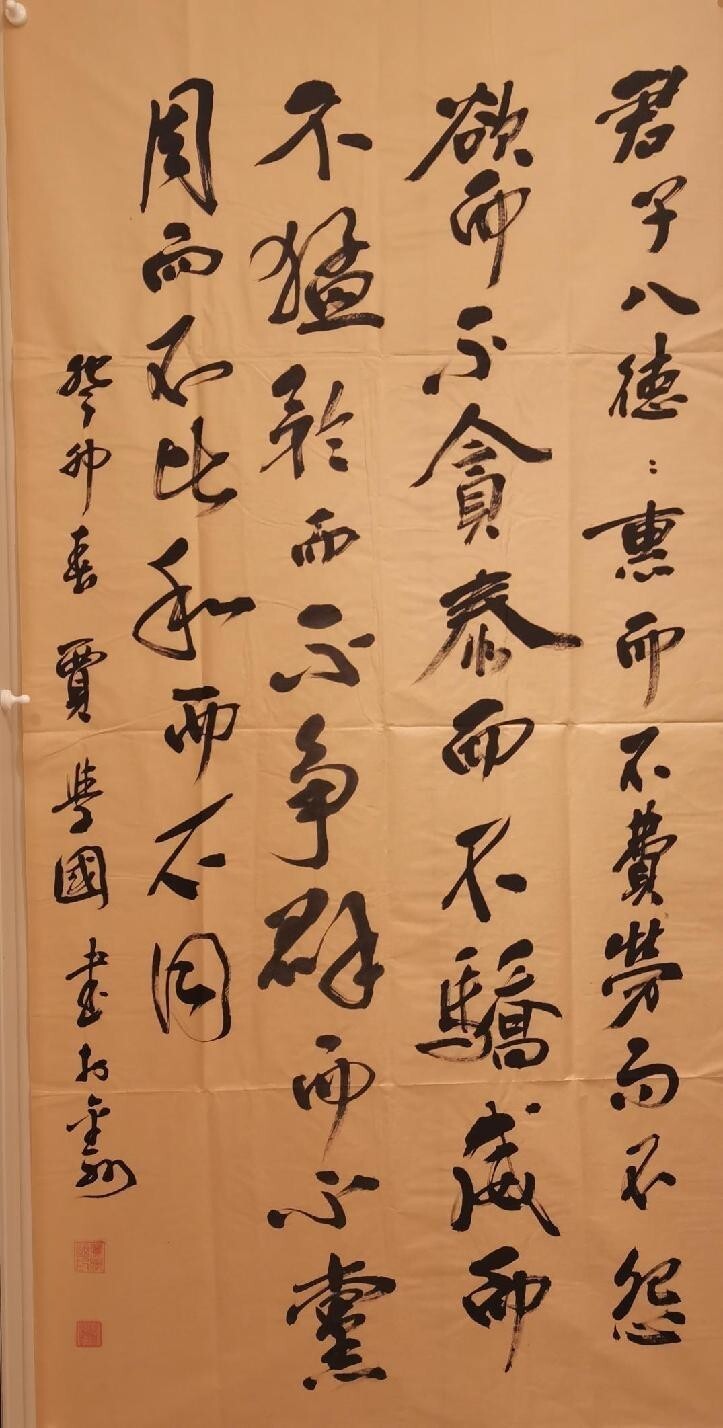 君子八德：惠而不費勞而不怨
欲而不貪泰而不驕威而
不猛矜而不争群而不黨
周而不比和而不同
癸卯春賈學國書於